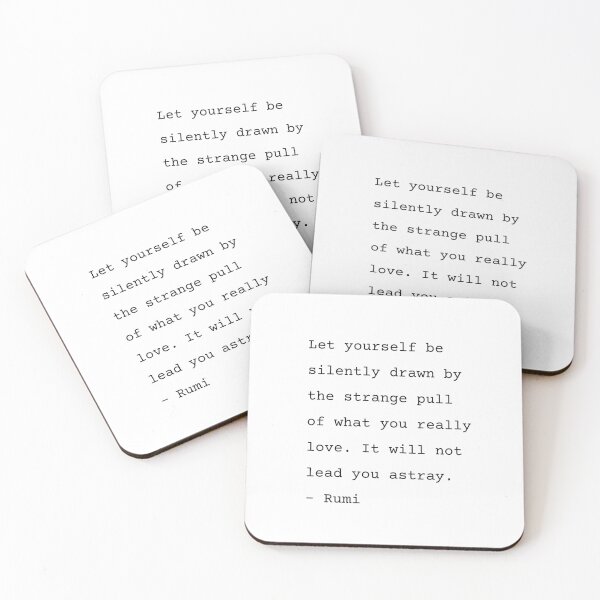 Let yourself be
silently drawn by
the strange pull
of really
not
Let yourself be
silently drawn by
the strange pull
of what you really
love. It will not
lead you
Let yourself be
silently drawn by
the strange pull
of what you really
love. It will
lead you astray.
– Rumi
Let yourself be
silently drawn by
the strange pull
of what you really
love. It will not
lead you astray.
– Rumi